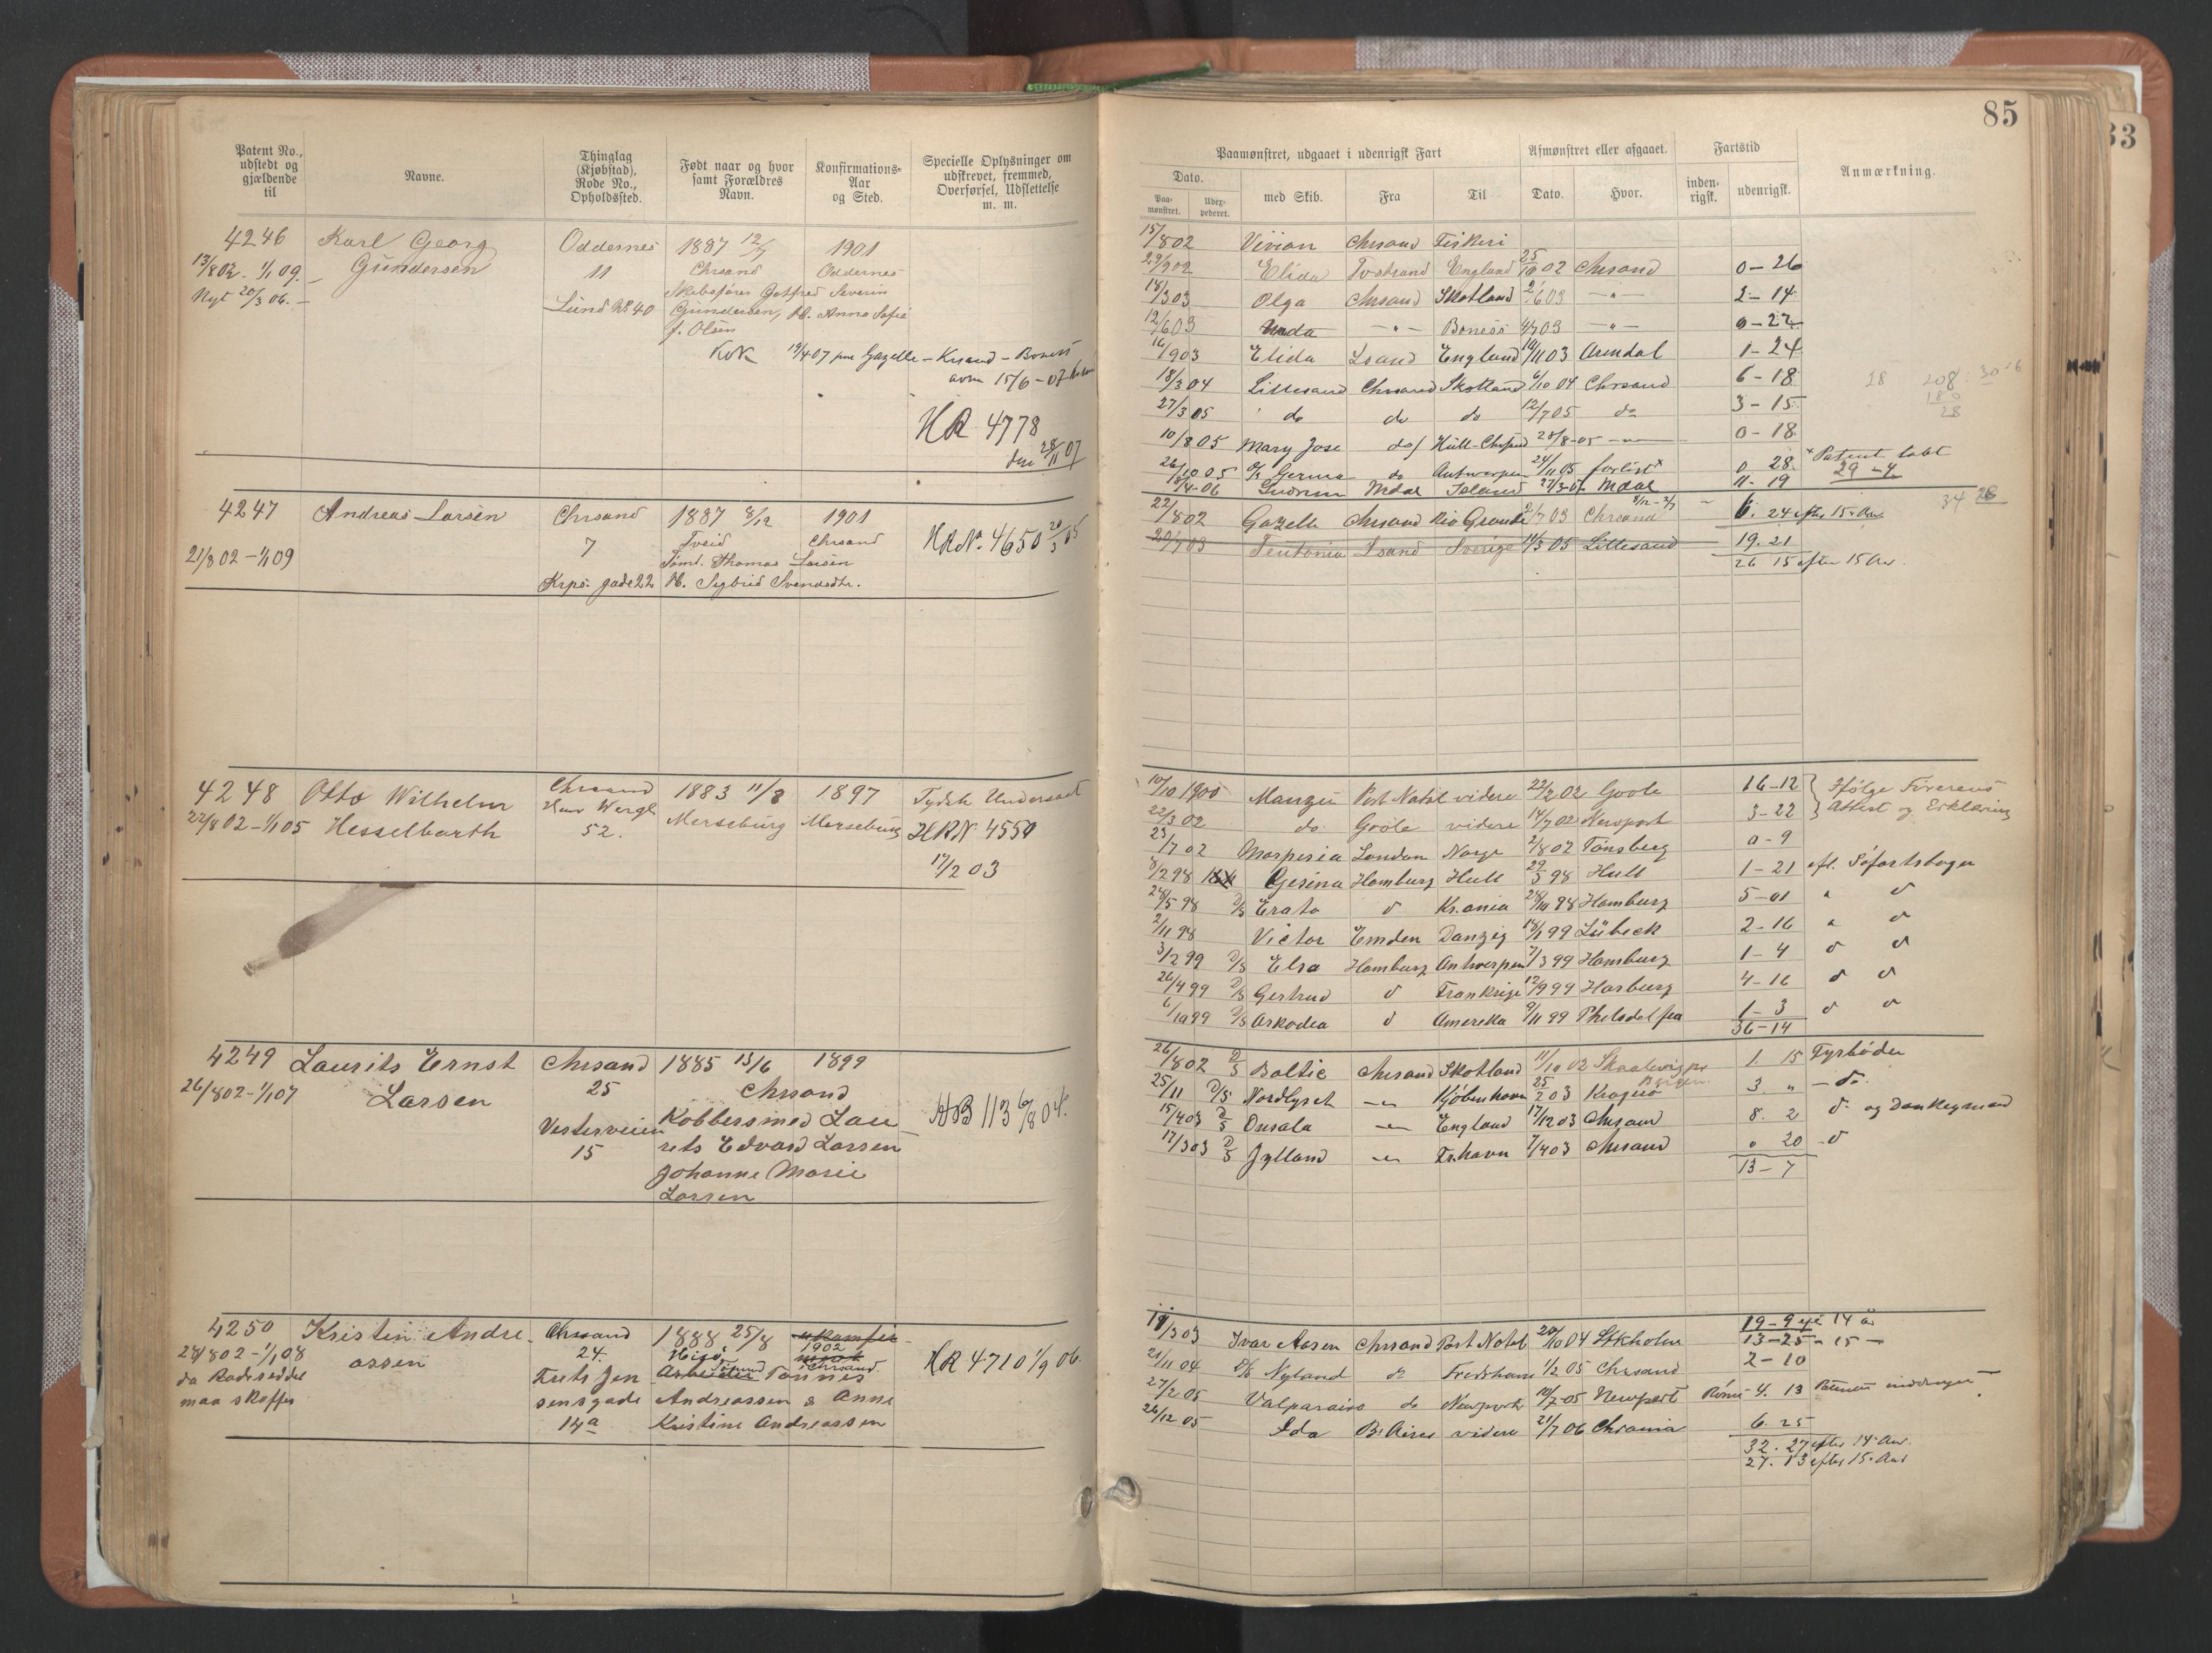 85
33
Patent No., udstedt og gjældende til
Navne.
Thinglag (Kjøbstad), Rode No., Opholdssted.
Født naar og hvor samt Forældres Navn.
Konfirmations-Aar og Sted.
Specielle Oplysninger om udskrevet, fremmed, Overførsel, Udslettelse m. m.
Paamønstret, udgaaet i udenrigsk Fart
Afmønstret eller afgaaet.
Fartstid
Anmærkning.
Dato.
Paa-mønstret.
Udex-pederet.
med Skib.
Fra
Til
Dato.
Hvor.
inden-rigsk.
udenrigsk.
4246 Karl Georg Oddernes 1887 12/7 1901
13/8 02 - 1/1 09. Gundersen 11 Chrsand Oddernes
Nyt 20/3 06. Skibsfører Gotfred Severin
Lund No 40 Gundersen, H. Anna Sofie
f. Olsen
Kok 19/4 07 pm Gazelle - Krsand - Boness
avm 15/6 - 07
HR 4778
28/11 07
15/8 02 Vivian Chrsand Fiskeri
29/9 02 Elida Tvestrand England 25/10 02 Chrsand 0-26
18/3 03 Olga Chrsand Skotland 2/6 03 -"- 2-14
12/6 03 -"- Boness 4/7 03 -"- 0-22
16/9 03 Elida Lsand England 10/11 03 Arendal 1-24
18/3 04 Lillesand Chrsand Skotland 6/10 04 Chrsand 6-18
27/3 05 do do do 12/7 05 do 3-15
10/8 05 Mary Jose do Hull-Chrsand 28/8-05 -"- 0-18
26/10 05 do Antwerpen 24/11 05 forlist x 0 28 x Patent tabt
18/4-06 Gudrun Mdal Island 27/3-07 Mdal 11-19 29-4
28 208:30
180
28
4247 Andreas Larsen Chrsand 1887 8/12 1901
7 Tveid Chrsand HR No. 4650 20/3 05
21/8 02 - 1/1 09 Tømt. Thomas Larsen
Krps. gade 22 H. Sigbrid Svendsdtr.
22/8 02 Gazelle Chrsand Rio Grande 2/7 03 Chrsand 6. 24 efter 15 Aar 34 28
20/7 03 Teutonia Lsand Sverige 14/3 05 Lillesand 19. 21
26 15 efter 15 Aar.
4248 Otto Wilhelm Chrsand 1883 11/8 1897 Tydsk Undersaat
22/8 02 - 1/1 05 Hesselbarth Henr Wergl 52. Merseburg Merseburg HRN. 4550
17/12 03
10/10 1900 Port Natal videre 22/2 02 Goole 16-12 Ifølge Førerens
22/3 02 do Goole videre 14/7 02 Newport 3-22 Attest og Erklæring
23/7 02 Marpesia London Norge 2/8 02 Tönsberg 0-9
8/2 98 Gesina Hamburg Hull 29/3 98 Hull 1-21 efl. Søfartsbogen
28/5 98 D/S Erato d Kr.ania 28/10 98 Hamburg 5-01 " d
2/11 98 Victor Emden Danzig 18/1 99 Lübeck 2-16 " d
3/2 99 D/S Elsa Hamburg Antwerpen 7/3 99 Hamburg 1-4 d d
26/4 99 D/S Gertrud d Frankrige 12/9 99 Harburg 4-16 d d
6/10 99 D/S Askodea d Amerika 9/11 99 Philadelfia 1-3 d d
36-14
4249 Laurits Ernst Chrsand 1885 13/6 1899
26/8 02 - 1/1 07 Larsen 25 Chrsand
Vesterveien Kobbersmed Lau
15 rits Edvard Larsen
Johanne Marie
Larsen
HB 113 6/8 04.
26/8 02 D/S Baltic Chrsand Skotland 11/10 02 Skaalevig pr Bergen 1. 15 Fyrbøder
25/11 D/S Nordlyset -"- Kjøbenhavn 25/2 03 Kragerø 3. " - do.
15/4 03 D/S Onsala -"- England 17/12 03 Chrsand 8. 2 d og Donkeymand
17/3 03 D/S Jylland -"- Fr.havn 7/4 03 Chrsand " 20 - d
13-7
4250 Kristen Andre- Chrsand 1888 25/8 1902
28/8 02 - 1/1 08 assen 24. Chrsand
da Rodeseddel Frits Jen Arbeider Tønnes
maa skaffes sensgade Andreassen & Anne
14a Kristine Andreassen
HR 4710 1/9 06.
19-9 14 å
18/3 03 Ivar Aasen Chrsand Port Natal 20/10 04 Stkholm 13-25 " 15 -
21/11 04 D/S Nyland do Fredrhavn 1/2 05 Chrsand 2-10
27/2 05 Valparaiso do Newport 10/7 05 Newport Rømt 4. 13 Patentet inddraget
26/12 05 Ida B. Aires videre 21/7 06 Chrania 6. 25
32. 27 efter 14 Aar.
27. 13 efter 15 Aar